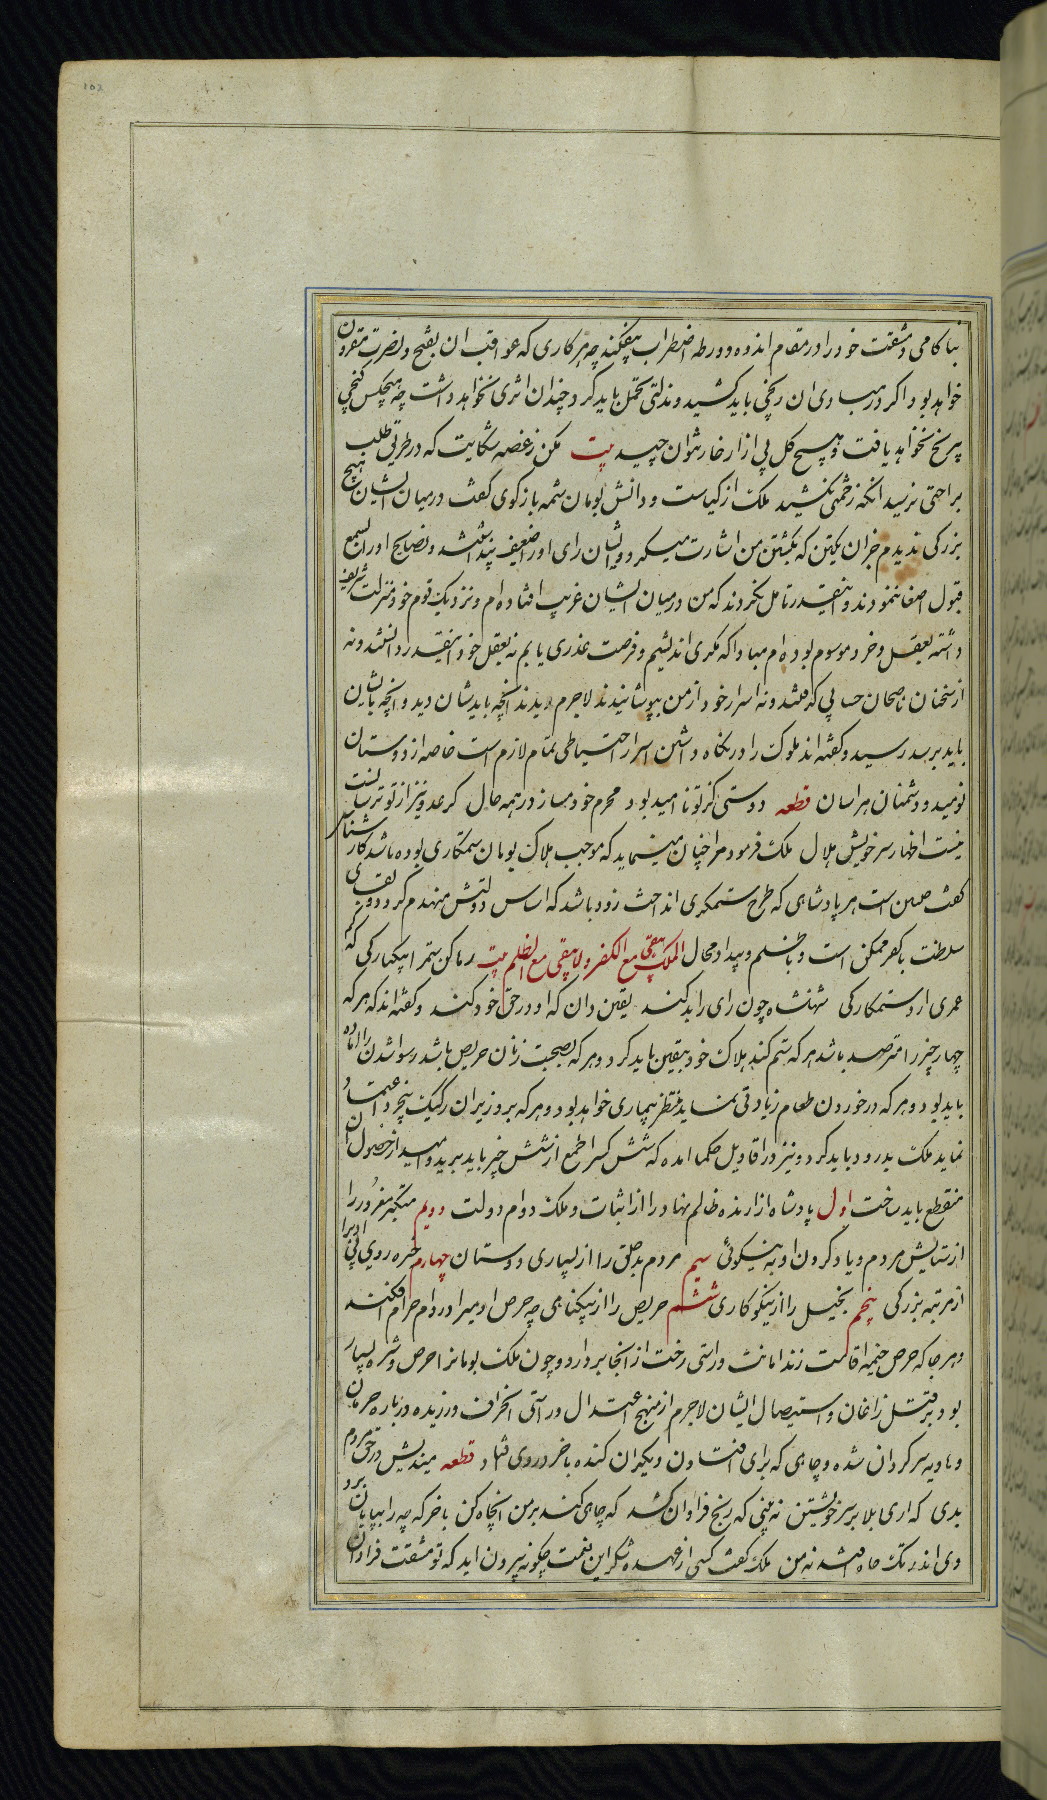 بناکامی و مشقت خود را در مقام اندوه و ورطه اضطراب بیفکند چه هر کاری که عواقب ان بفتح و نصرت مقرون
خواهد بود اکر در مبادی ان رنجی باید کشید و مذلتی تحمل باید کرد چندان اثری نخواهد داشت چه هیچکس کنجی
بی رنج نخواهد یافت و هیچ کل بی ازار خار نتوان چید بیت مکن ز غصه شکایت که در طریق طلب
براحتی نرسید انکه زحمتی نکشید ملک از کیاست و دانش بومان شمه بازکوی کفت در میان ایشان هیچ
بزرکی ندیدم جز ان یکتن که بکشتن من اشارت میکرد و ایشان رای او را ضعیف پنداشتند و نصایح او را بسمع
قبول اصغا ننمودند و اینقدر تامل نکردند که من در میان ایشان غریب افتاده ام و نزدیک قوم خود منزلت شریف
داشته بعقل و خرد موسوم بوده ام مبادا که مکری اندیشم و فرصت غدری یابم نه بعقل خود اینقدر دانستند و نه
از سخنان ناصحان حسابی کرفتند و نه اسرار خود از من بپوشانیدند لاجرم دیدند انچه بایدشان دید و انچه بایشان
باید برسد رسید و کفته اند ملوک را در نکاه داشتن اسرار احتیاطی تمام لازم است خاصه از دوستان
نومید و دشمنان هراسان قطعه دوستی کز تو ناامید بود محرم خود مساز در همه حال کر عدو نیز از تو ترسانست
نیست اظهار سر خویش حلال ملک فرمود مرا چنان مینماید که موجب هلاک بومان ستمکاری بوده باشد کارشناس
کفت همین است هر پادشاهی که طرح ستمکری انداخت زود باشد که اساس دولتش منهدم کردد و بقای
سلطنت با کفر ممکن است و با ظلم و بیداد محال الملک یبقی مع الکفر و لا یبقی مع الظلم بیت رها کن ستم را بیکبارکی که کم
عمری ارد ستمکارکی شهنشاه چون رای را بد کند یقین دان که او در حق خود کند و کفته اند که هر که
چهار چیز را مترصد باشد هر که ستم کند هلاک خود بیقین باید کرد و هر که بصحبت زنان حریص باشد رسوا شدن را اماده
باید بود و هر که در خوردن طعام زیادتی نماید منتظر بیماری خواهد بود و هر که بر وزیران رکیک بی خرد اعتماد
نماید ملک بدرود باید کرد و نیز در اقاویل حکما امده که شش کس را طمع از شش چیز باید برید و امید از حصول ان
منقطع باید ساخت اول پادشاه ازارنده ظالم نهاد را از ثبات و ملک و دوام دولت دویم متکبر مغرور را
از ستایش مردم و یاد کردن او به نیکوئی سیم مردم بدخلق را از بسیاری دوستان چهارم خیره روی بی ادب را
از مرتبه بزرکی پنجم بخیل را از نیکوکاری ششم حریص را از بیکناهی چه حرص ادمی را در دام حرام افکند
و هر جا که حرص خیمه اقامت زند امانت و راستی رخت از انجا بردارد و چون ملک بومانرا حرص و شره بسیار
بود بر قتل زاغان و استیصال ایشان لاجرم از منهج اعتدال و راستی انحراف ورزیده در بادیه حرمان
و هاویه سرکردان شده و چاهی که برای افتادن دیکران کنده باخر در وی فتاد قطعه میندیش در حق مردم
بدی که اری بلا بر سر خویشتن نه بینی که رنج فراوان کشد که چاهی کند بر من انچاه کن باخر که چه را بپایان برد
وی اندر تک چاه افتد نه من ملک کفت کسی از عهده شکر این نعمت چکونه بیرون اید که تو مشقت فراوان